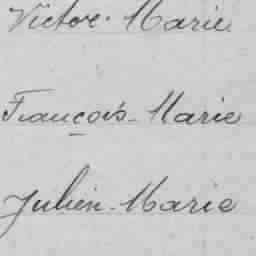 Victor-Marie
François-Marie
Julien-Marie